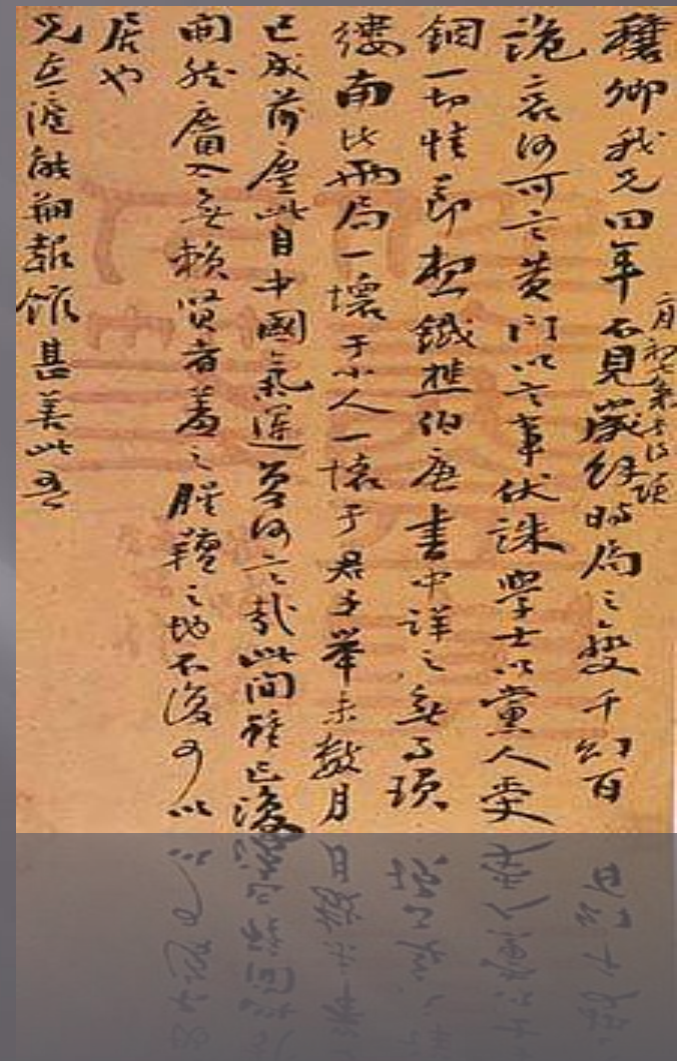 月初七
穰卿我兄四年不見歲經時局之變千幻百
詭哀何可言黃門以言事伏誅學士以黨人受
錮一切情節想鐵樵伯唐書中詳之無事瑣
縷南北兩局一壞于小人一壞于君子舉未數月
已成前塵此自中國氣運吾何言哉此間雖已復
開然麕入無賴賢者羞之腥羶之地不復可以
居也
兄在滬能報館甚善此吾